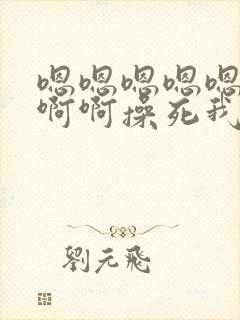 嗯嗯嗯嗯嗯
啊啊操死我
劉元飛